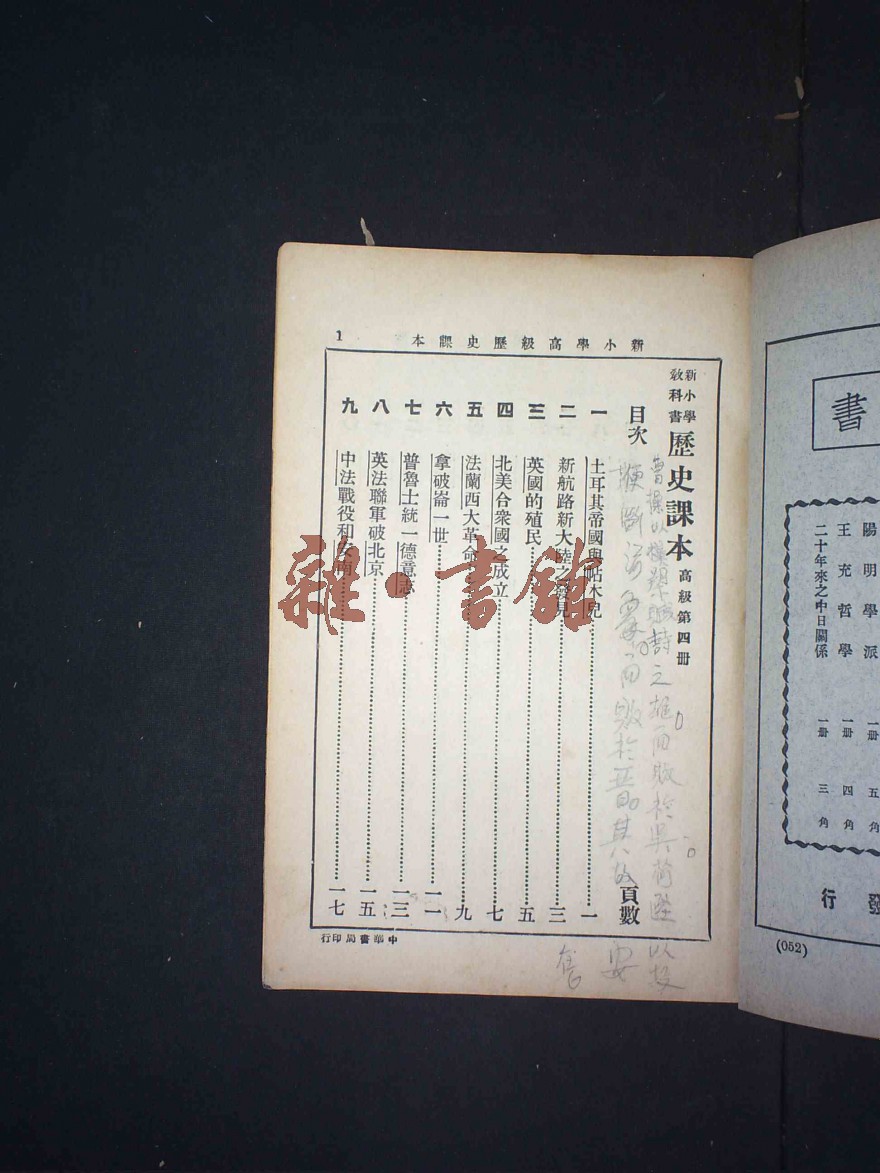 新小學高級歷史課本
1
新小學教科書 歷史課本 高級第四冊
目次 頁數
一 土耳其帝國與帖木兒 一
二 新航路新大陸之發見 三
三 英國的殖民 五
四 北美合衆國之成立 七
五 法蘭西大革命 九
六 拿破崙一世 一一
七 普魯士統一德意志 一三
八 英法聯軍破北京 一五
九 中法戰役和安南 一七
中華書局印行
雜·書館
書
陽明學派 一冊 五角
王充哲學 一冊 四角
二十年來之中日關係 一冊 三角
發行
(052)